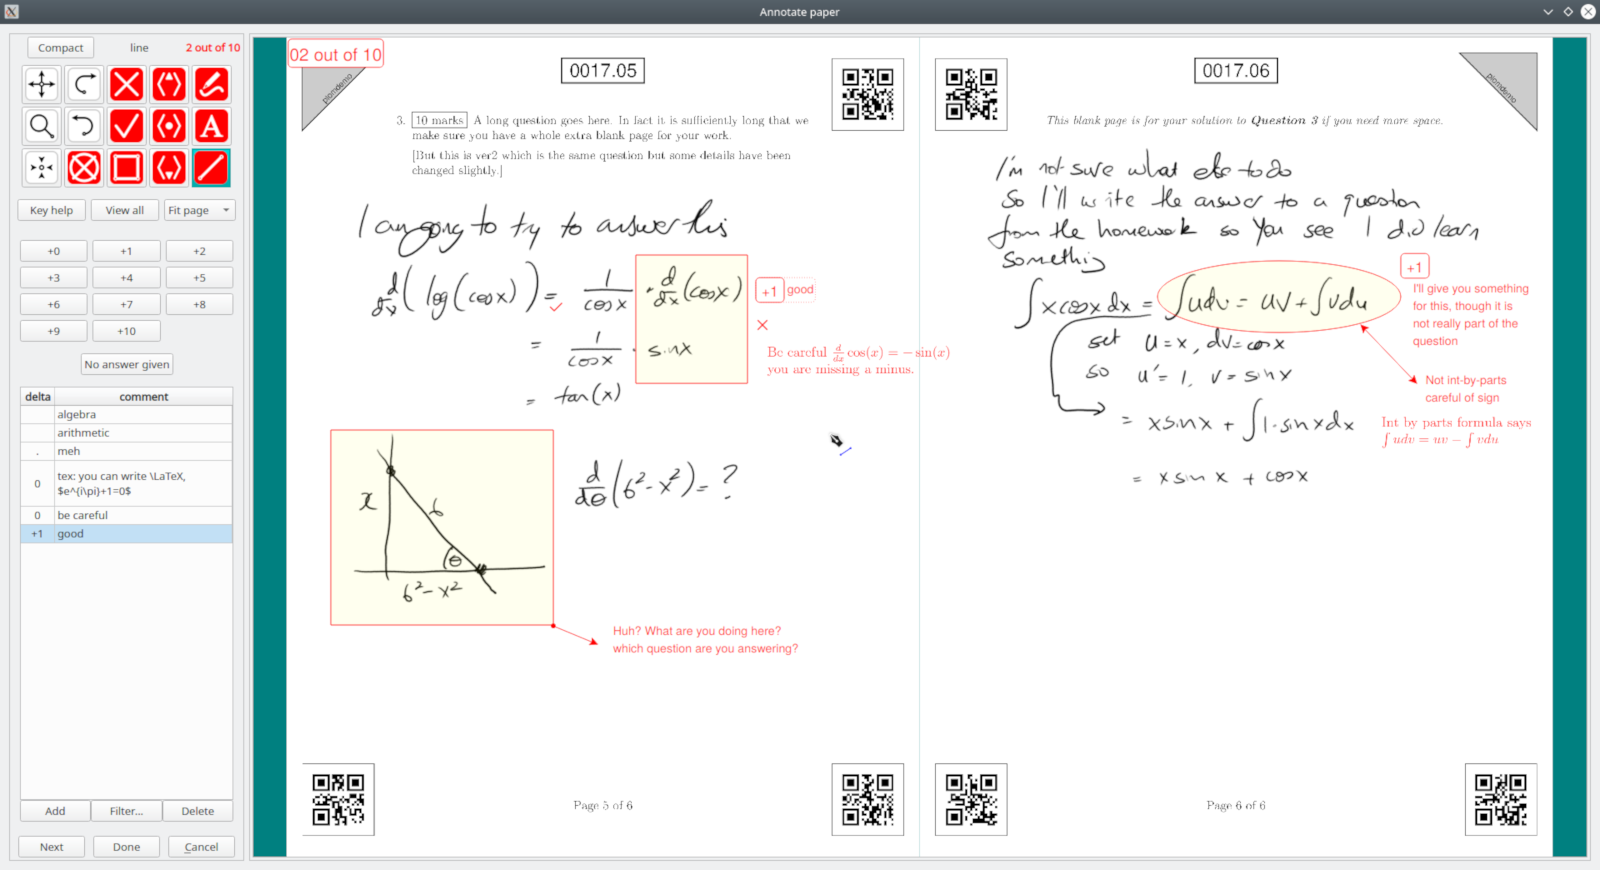 Annotate paper
Compact
line
2 out of 10
Key help
View all
Fit page
+0
+1
+2
+3
+4
+5
+6
+7
+8
+9
+10
No answer given
delta
comment
algebra
arithmetic
. meh
0 tex: you can write \LaTeX,
$e^{i\pi}+1=0$
0 be careful
+1 good
Add
Filter...
Delete
Next
Done
Cancel
02 out of 10
plomdemo
0017.05
3. 10 marks A long question goes here. In fact it is sufficiently long that we
make sure you have a whole extra blank page for your work.
[But this is ver2 which is the same question but some details have been
changed slightly.]
I am going to try to answer this
d/dx (log(cosx)) = 1/cosx · d/dx (cosx)
+1 good
= 1/cosx · sinx
Be careful d/dx cos(x) = − sin(x)
you are missing a minus.
= tan(x)
x
6
θ
6² - x²
d/dθ (6² - x²) = ?
Huh? What are you doing here?
which question are you answering?
Page 5 of 6
0017.06
plomdemo
This blank page is for your solution to Question 3 if you need more space.
I'm not sure what else to do
So I'll write the answer to a question
from the homework so you see I did learn
something
∫ x cosx dx = ∫udv = uv + ∫vdu
+1
I'll give you something
for this, though it is
not really part of the
question
set u = x, dv = cosx
so u' = 1, v = sinx
Not int-by-parts
careful of sign
= x sinx + ∫1·sinx dx
Int by parts formula says
∫ udv = uv − ∫ vdu
= x sinx + cosx
Page 6 of 6